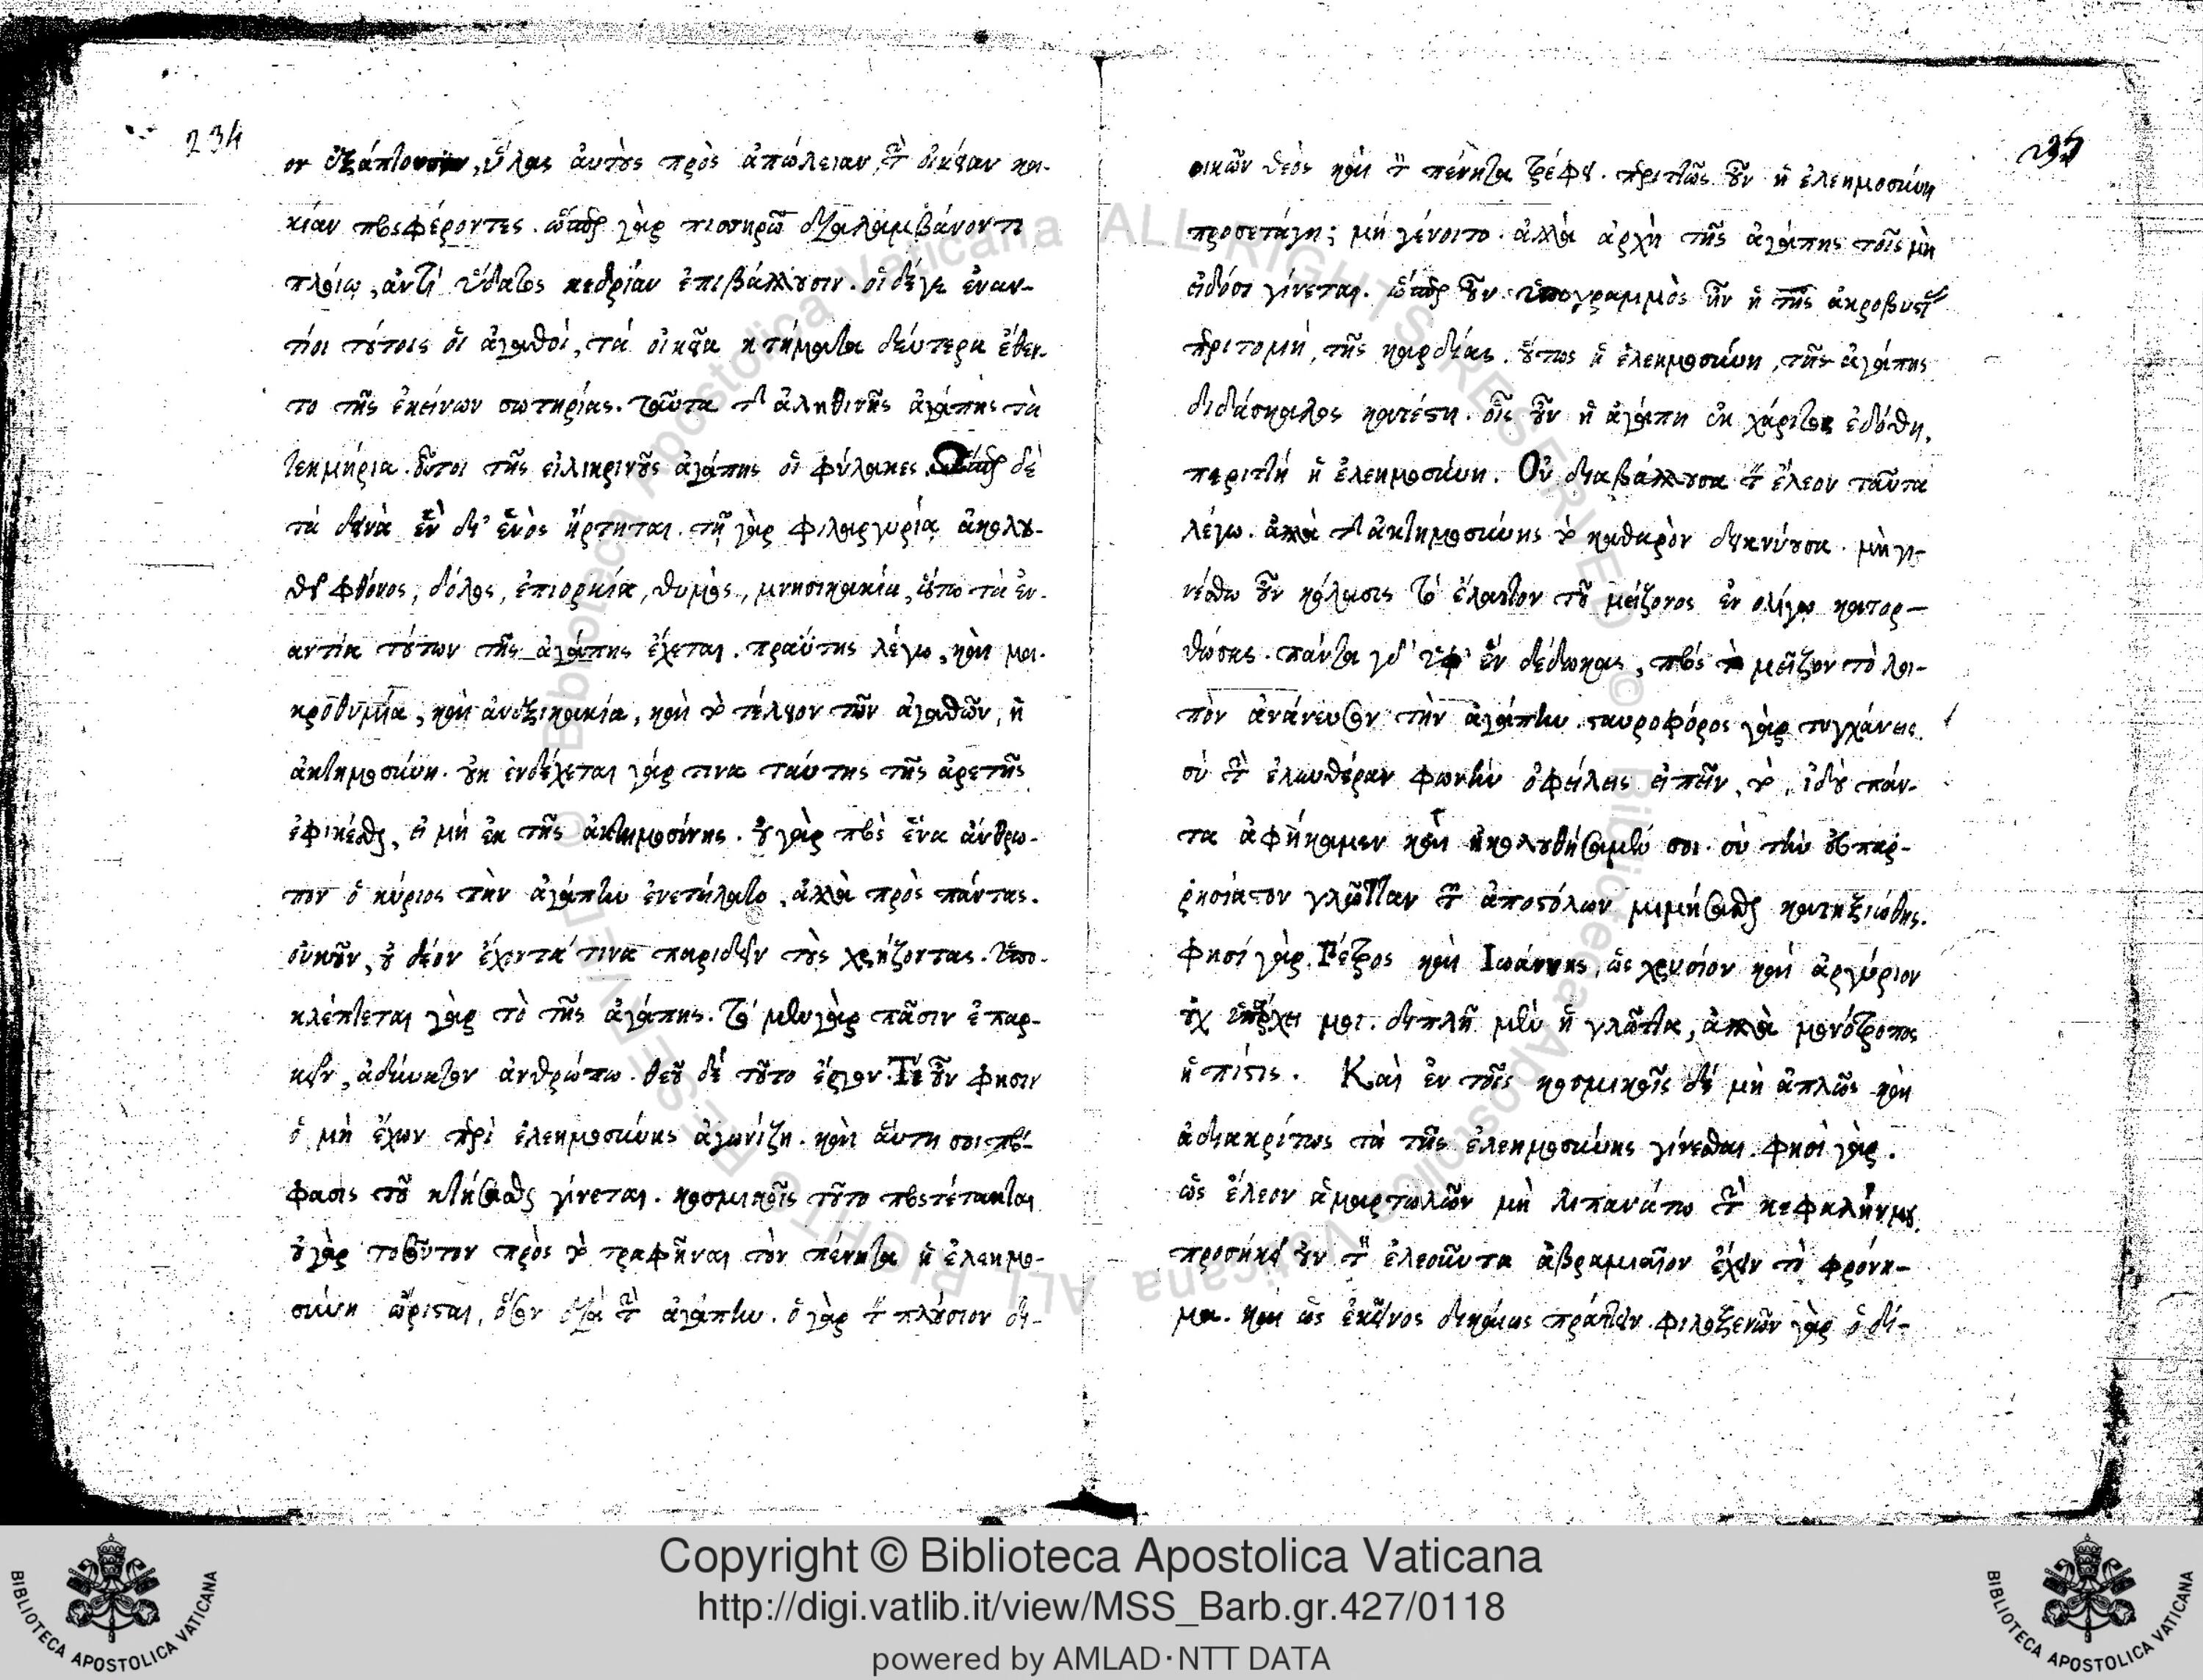 234
ον ἐξάπτουσιν, ὕλας αὐτοὺς πρὸς ἀπώλειαν, τὴν οἰκείαν κα-
κίαν προσφέροντες. ὥσπερ γὰρ πισσηρῷ διαλαμβάνοντι
πλοίῳ, ἀντὶ ὕδατος κεδρίαν ἐπιβάλλουσιν. οἱ δέ γε ἐναν-
τίοι τούτοις οἱ ἀγαθοὶ, τὰ οἰκεῖα κτήματα δεύτερα ἔθεν-
το τῆς ἐκείνων σωτηρίας. ταῦτα τῆς ἀληθινῆς ἀγάπης τὰ
τεκμήρια. οὗτοι τῆς εἰλικρινοῦς ἀγάπης οἱ φύλακες. Ὥσπερ δὲ
τὰ δεινὰ ἓν δι' ἑνὸς ἤρτηται. τῇ γὰρ φιλαργυρίᾳ ἀκολου-
θεῖ φθόνος, δόλος, ἐπιορκία, θυμὸς, μνησικακία, οὕτω τὰ ἐν-
αντία τούτων τῆς ἀγάπης ἔχεται. πραΰτης λέγω, καὶ μα-
κροθυμία, καὶ ἀνεξικακία, καὶ τὸ τέλειον τῶν ἀγαθῶν, ἡ
ἀκτημοσύνη. οὐκ ἐνδέχεται γάρ τινα ταύτης τῆς ἀρετῆς
ἐφικέσθαι, εἰ μὴ ἐκ τῆς ἀκτημοσύνης. οὐ γὰρ πρὸς ἕνα ἄνθρω-
πον ὁ κύριος τὴν ἀγάπην ἐνετείλατο, ἀλλὰ πρὸς πάντας.
οὐκοῦν, οὐ δέον ἔχοντά τινα παριδεῖν τοὺς χρῄζοντας. ὑπο-
κλέπτεται γὰρ τὸ τῆς ἀγάπης. τὸ μὲν γὰρ πᾶσιν ἐπαρ-
κεῖν, ἀδύνατον ἀνθρώπῳ. θεοῦ δὲ τοῦτο ἔργον. Τί οὖν φησιν
ὁ μὴ ἔχων περὶ ἐλεημοσύνης ἀγωνίζῃ. καὶ αὕτη σοι πρό-
φασις τοῦ κτήσασθαι γίνεται. κοσμικοῖς τοῦτο προστέτακται
οὐ γὰρ τοσοῦτον πρὸς τὸ τραφῆναι τὸν πένητα ἡ ἐλεημο-
σύνη ὥρισται, ὅσον διὰ τὴν ἀγάπην. ὁ γὰρ τὸν πλούσιον δι-
235
οικῶν θεὸς καὶ τὸν πένητα τρέφει. περιττῶς οὖν ἡ ἐλεημοσύνη
προσετάγη; μὴ γένοιτο. ἀλλὰ ἀρχὴ τῆς ἀγάπης τοῖς μὴ
εἰδόσι γίνεται. ὥσπερ οὖν ὑπογραμμὸς ἦν ἡ τῆς ἀκροβυστίας
περιτομὴ, τῆς καρδίας. οὕτως ἡ ἐλεημοσύνη, τῆς ἀγάπης
διδάσκαλος κατέστη. οἷς οὖν ἡ ἀγάπη ἐκ χάριτος ἐδόθη,
περιττὴ ἡ ἐλεημοσύνη. Οὐ διαβάλλουσα τὸν ἔλεον ταῦτα
λέγω. ἀλλὰ τῆς ἀκτημοσύνης τὸ καθαρὸν δεικνύουσα. μὴ γι-
νέσθω οὖν κώλυσις τὸ ἔλαττον τοῦ μείζονος ἐν ὀλίγῳ κατορ-
θώσης. πάντα γὰρ ὑφ' ἓν δέδωκας, πρὸς τὸ μεῖζον τὸ λοι-
πὸν ἀνάνευσον τὴν ἀγάπην. σταυροφόρος γὰρ τυγχάνεις.
σὺ τὴν ἐλευθέραν φωνὴν ὀφείλεις εἰπεῖν, τὸ, ἰδοὺ πάν-
τα ἀφήκαμεν καὶ ἠκολουθήσαμέν σοι. σὺ τὴν εὐπαρ-
ρησίαστον γλῶτταν τῶν ἀποστόλων μιμήσασθαι κατηξιώθης.
Φησὶ γὰρ Πέτρος καὶ Ἰωάννης, ὡς χρυσίον καὶ ἀργύριον
οὐχ ὑπάρχει μοι. διπλῆ μὲν ἡ γλῶττα, ἀλλὰ μονότροπος
ἡ πίστις. Καὶ ἐν τοῖς κοσμικοῖς δὲ μὴ ἁπλῶς καὶ
ἀδιακρίτως τὰ τῆς ἐλεημοσύνης γίνεσθαι. φησὶ γὰρ.
ὡς ἔλεον ἁμαρτωλῶν μὴ λιπανάτω τὴν κεφαλήν μου.
προσήκει οὖν τὸν ἐλεοῦντα ἀβραμιαῖον ἔχειν τὸ φρόνη-
μα. καὶ ὡς ἐκεῖνος δικαίως πράττειν. φιλοξενῶν γὰρ ὁ δί-
Copyright © Biblioteca Apostolica Vaticana
http://digi.vatlib.it/view/MSS_Barb.gr.427/0118
powered by AMLAD·NTT DATA
BIBLIOTECA APOSTOLICA VATICANA
BIBLIOTECA APOSTOLICA VATICANA